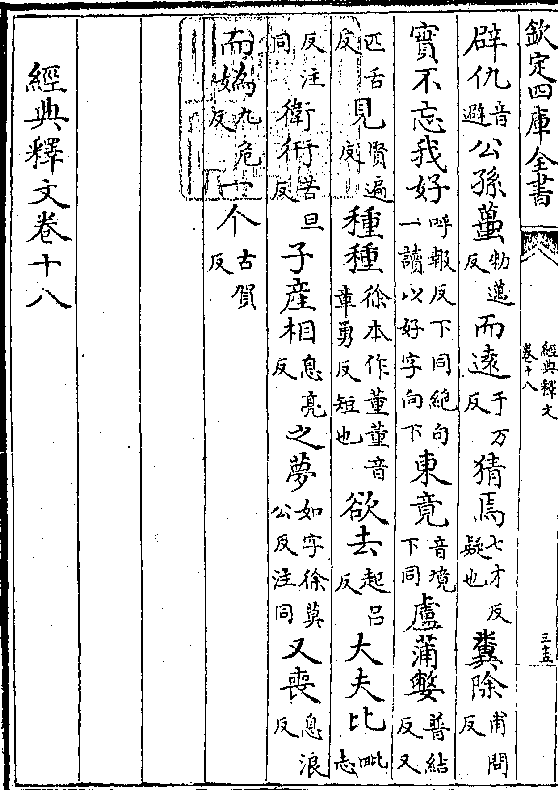 欽定四庫全書
經典釋文
卷十八
三十五
辟仇音避公孫蠆勑邁反而遠于万反猜焉七才反疑也糞除甫問反
實不忘我好呼報反下同絶句一讀以好字向下東竟音境下同盧蒲嫳普結反又
匹舌反見賢遍反種種徐本作董董音章勇反短也欲去起吕反大夫比毗志
反注同衛衎苦旦反子産相息亮反之夢如字徐莫公反注同又喪息浪反
而為九危一个古賀反
經典釋文卷十八